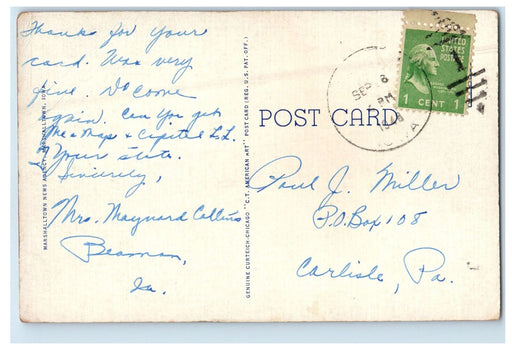 Thanks for your
card. Was very
fine. Do come
again. Can You get
Me a Map & Capitol L.L.
of Your state.
Sincerely,
Mrs. Maynard Collins
Beaman,
Ia.
MARSHALLTOWN NEWS AGENCY, MARSHALLTOWN, IOWA
GENUINE CURTEICH-CHICAGO "C.T. AMERICAN ART" POST CARD (REG. U.S. PAT. OFF.)
POST CARD
SEP 8
PM
IOWA
UNITED
STATES
POSTAGE
1 CENT 1
Paul J. Miller
P.O. Box 108
Carlisle, Pa.